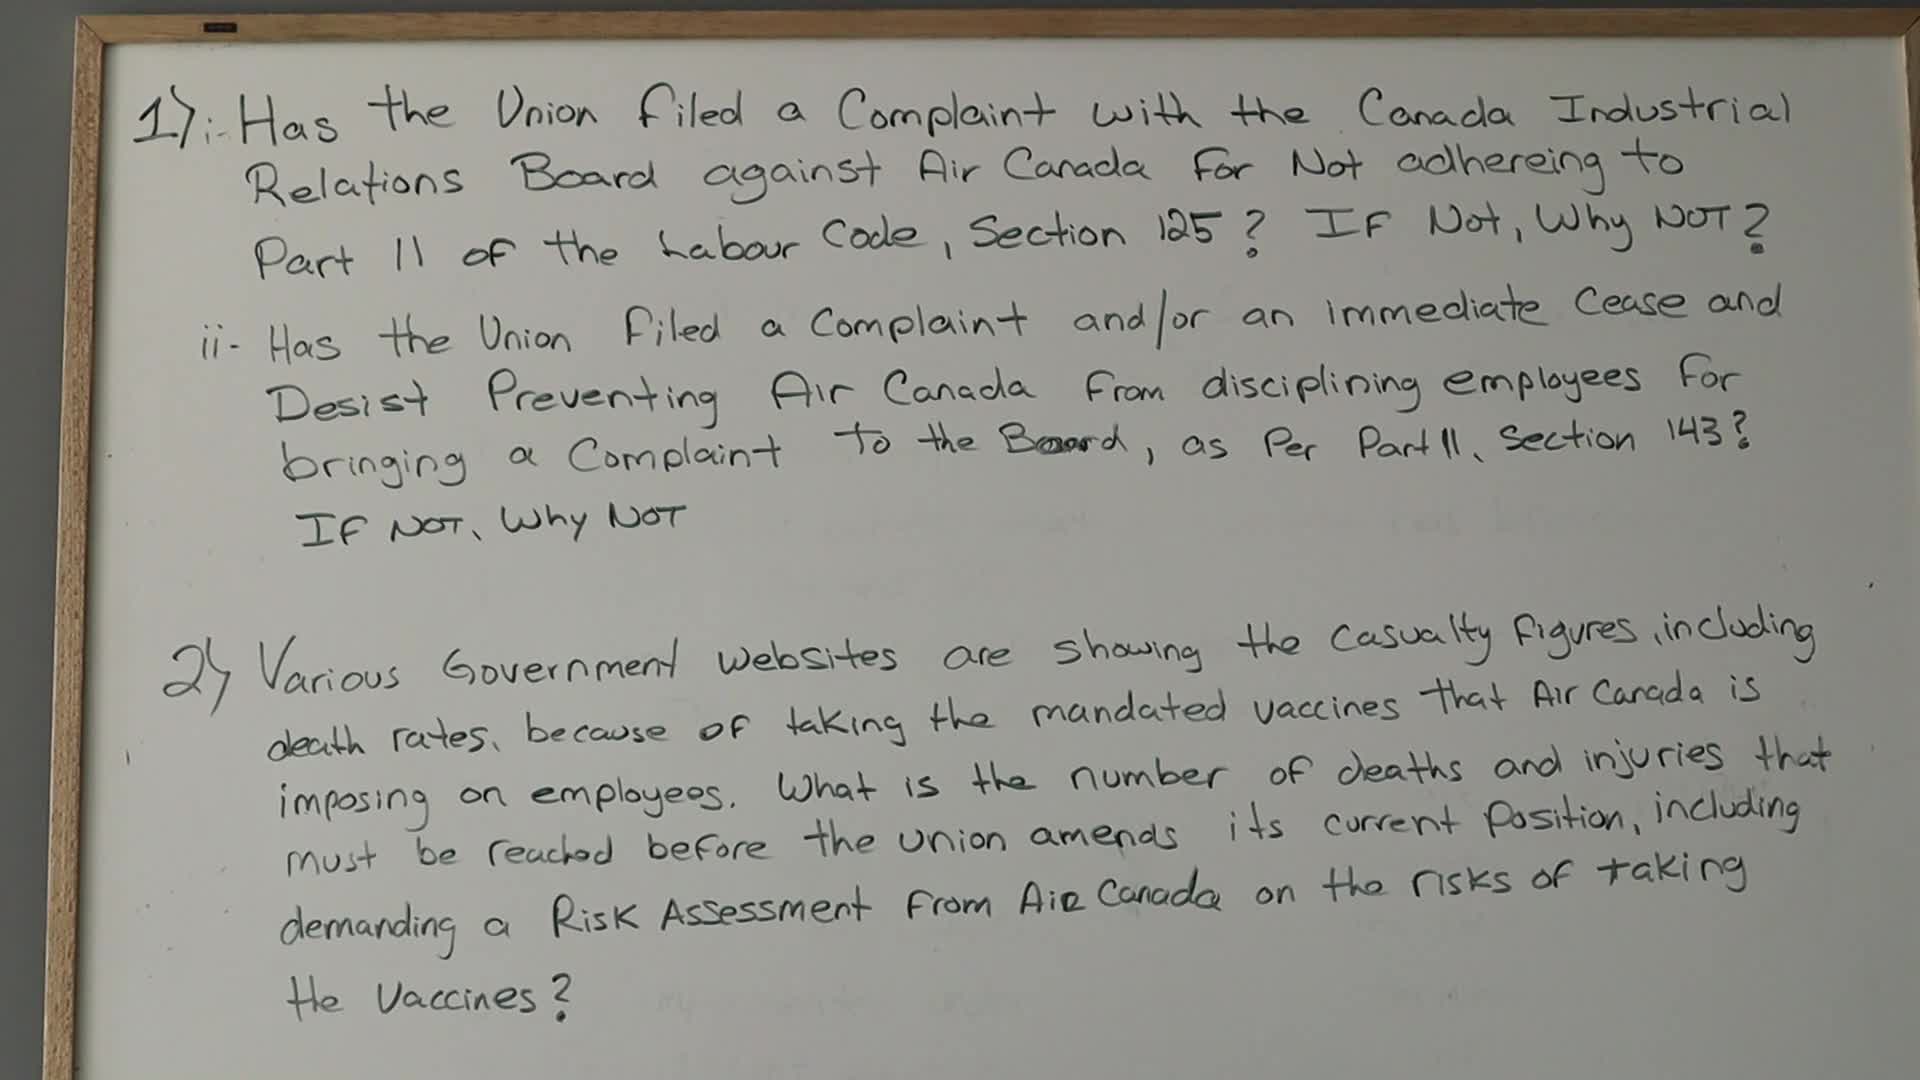 1) i- Has the Union filed a Complaint with the Canada Industrial
Relations Board against Air Canada For Not adhereing to
Part II of the Labour Code, Section 125? IF Not, Why NOT?
ii- Has the Union filed a Complaint and/or an immediate Cease and
Desist Preventing Air Canada From disciplining employees For
bringing a Complaint To the Board, as Per Part II, Section 143?
IF NOT, Why NOT
2) Various Government websites are showing the casualty figures, including
death rates, because of taking the mandated vaccines that Air Canada is
imposing on employees. What is the number of deaths and injuries that
must be reached before the union amends its current Position, including
demanding a Risk Assessment From Air Canada on the risks of taking
the Vaccines?